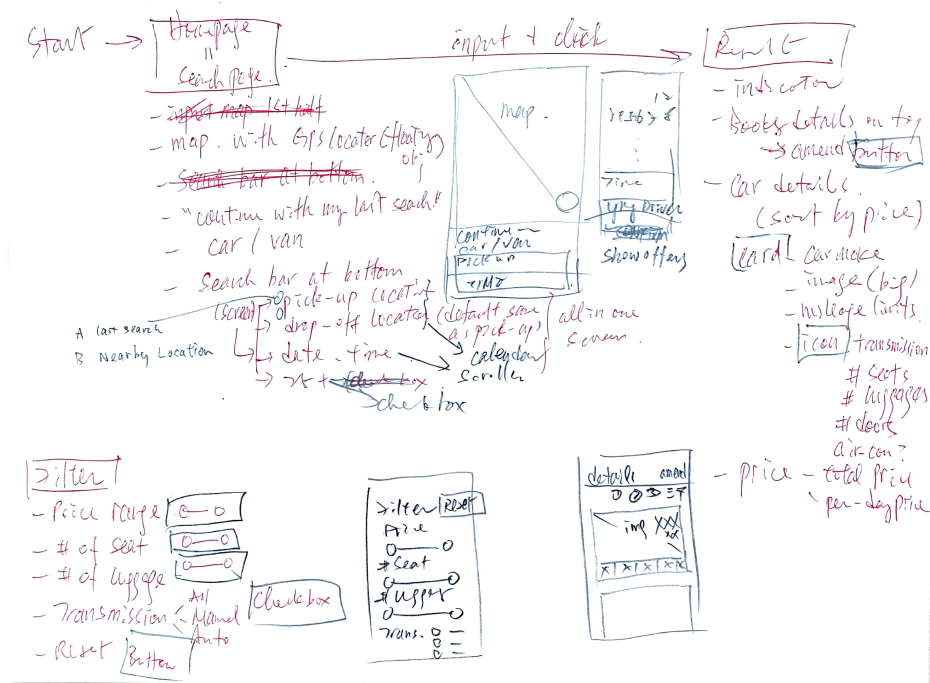 Start → Homepage
=
Search page.
input + click
Result
- input map 1st half
- map. with GPS locater (floaty obj)
- Search bar at bottom.
- "continue with my last seach"
- car / van
- Search bar at bottom
(screen)
→ pick-up location
→ drop-off locater (default same as pick-up)
→ date. time
checkbox
checkbox
all in one
screen.
calendar
scroller
A last search
B Nearby Location
map.
continue
car/van
pick up
time
12
Time
Show offers
- indicator
- Books details on top
→ amend button
- Car details.
(sort by price)
card - car make
- image (big)
- mileage limits.
- icon transmission
# seats
# luggages
# doors
air-con?
- price - total price
per-day price
Filter
- Price range
- # of seat
- # of luggage
- Transmission
All
Manual
Auto
Checkbox
- Reset Button
Filter Reset
Price
# Seat
Trans.
details amend
img XXX
XX
X X X X X